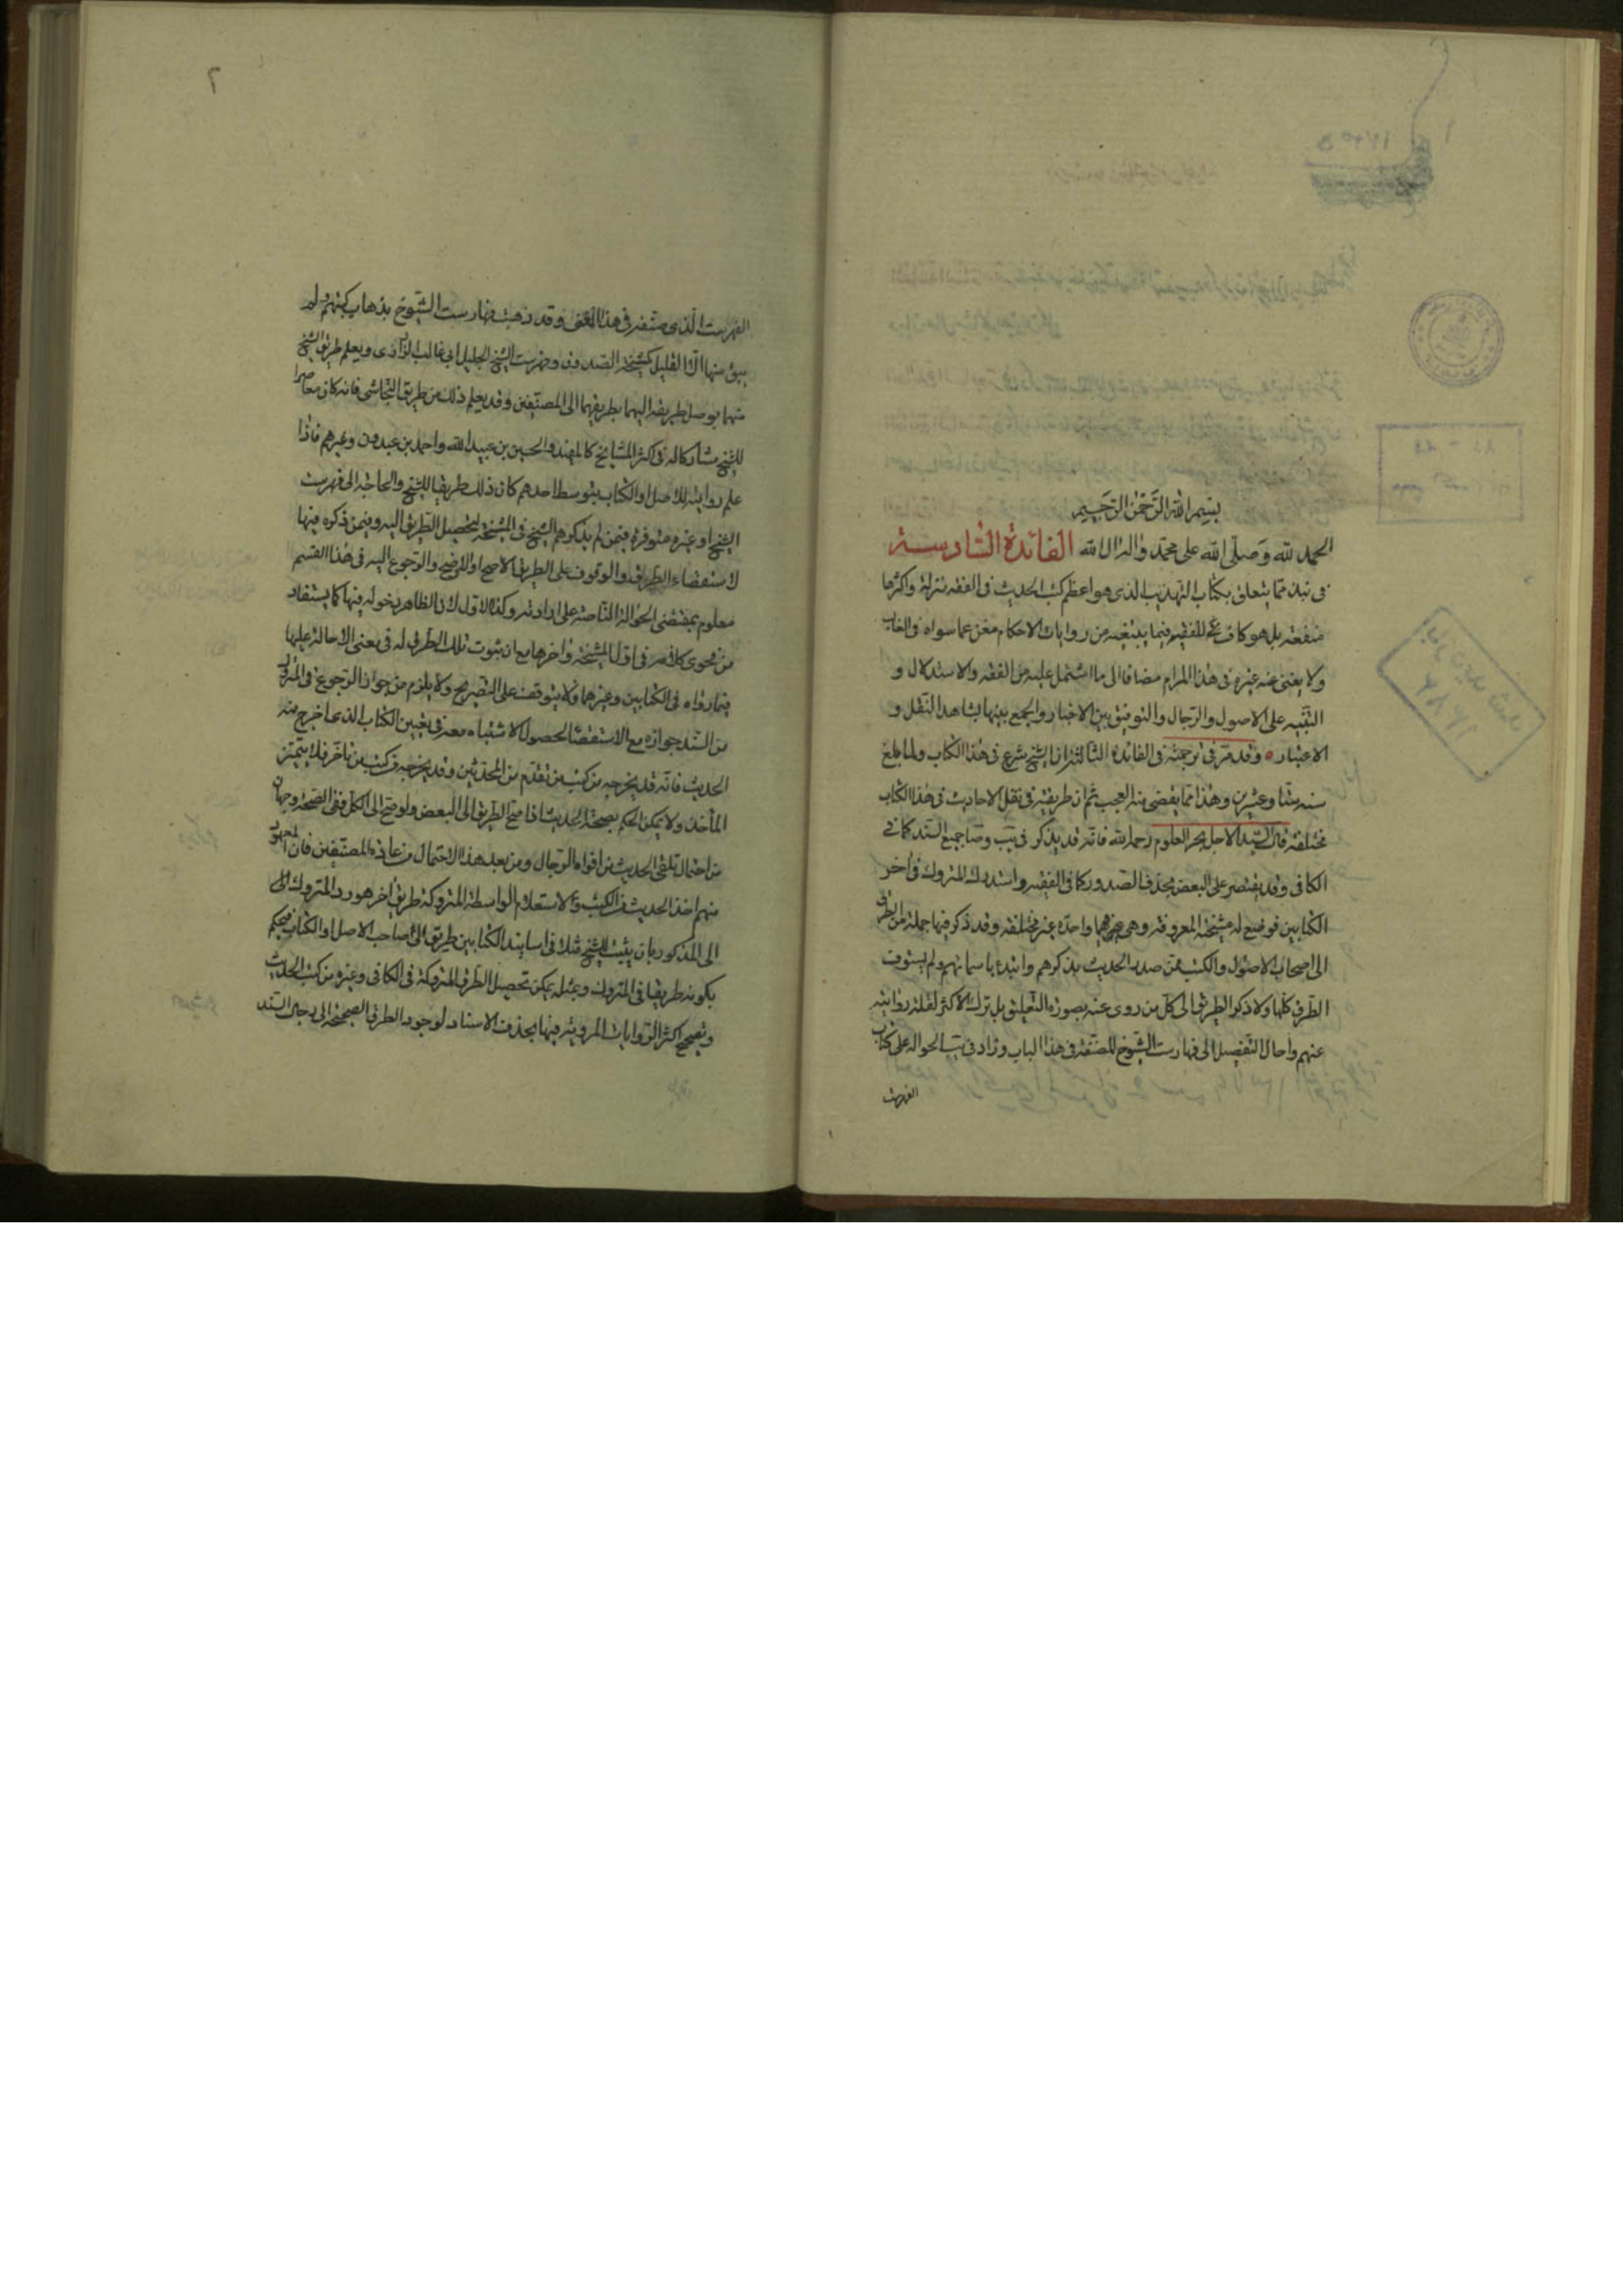 بسم الله الرحمن الرحيم
الحمد لله وصلى الله على محمد واله ال الله الفائدة السادسة
فى نبذ مما يتعلق بكتاب التهذيب الذى هو اعظم كتب الحديث فى الفقه منزلة واكثرها
منفعة بل هو كاف للفقيه فيما يبتغيه من روايات الاحكام مغن عما سواه فى الغالب
ولا يغنى عنه غيره فى هذا المرام مضافا الى ما اشتمل عليه من الفقه والاستدلال و
التنبيه على الاصول والرجال والتوفيق بين الاخبار والجمع بينها بشاهد النقل و
الاعتبار وقد مر فى ترجمته فى الفائدة الثالثة ان الشيخ شرع فى هذا الكتاب ولما بلغ
سنه ستا وعشرين وهذا مما يقضى منه العجب ثم ان طريقته فى نقل الاحاديث فى هذا الكتاب
مختلفة قال السيد الاجل بحر العلوم رحمه الله فانه قد يذكر فى يب وصا جميع السند كما فى
الكافى وقد يقتصر على البعض بحذف الصدور كما فى الفقيه واستدرك المتروك فى اخر
الكتابين فوضع له مشيخته المعروفة وهى فيهما واحدة غير مختلفة وقد ذكر فيها جملة من الطرق
الى اصحاب الاصول والكتب ممن صدر الحديث بذكرهم وابتدء باسمائهم ولم يستوف
الطرق كلها ولا ذكر الطريق الى كل من روى عنه بصورة التعليق بل ترك الاكثر لقلة روايته
عنهم واحال التفصيل الى فهارست الشيوخ المصنفة فى هذا الباب وزاد فى يب الحوالة على كتاب
الفهرست
الفهرست الذى صنفه فى هذا المعنى وقد ذهبت فهارست الشيوخ بذهاب كتبهم ولم
يبق منها الا القليل كمشيخة الصدوق وفهرست الشيخ الجليل ابى غالب الزرارى ويعلم طريق الشيخ
منهما بوصل طريقه اليهما بطريقهما الى المصنفين وقد يعلم ذلك من طريق النجاشى فانه كان معاصرا
للشيخ مشاركا له فى اكثر المشايخ كالمفيد والحسين بن عبيد الله واحمد بن عبدون وغيرهم فاذا
علم روايته للاصل او الكتاب بتوسط احدهم كان ذلك طريقا للشيخ والحاجة الى فهرست
الشيخ او غيره متوفرة فيمن لم يذكرهم الشيخ فى المشيخة لتحصيل الطريق اليه وفيمن ذكره فيها
لاستقصاء الطرق والوقوف على الطريق الاصح او الاوضح والرجوع اليه فى هذا القسم
معلوم بمقتضى الحوالة الناصة على ارادته وكذا الاول لان الظاهر دخوله فيها كما يستفاد
من فحوى كلامه فى اول المشيخة واخرها مع ان ثبوت تلك الطرق له فى معنى الاحالة عليها
فيما رواه فى الكتابين وغيرهما ولا يتوقف على التصريح ولا يلزم من جواز الرجوع فى المتروك
من السند جوازه مع الاستقصاء لحصول الاشتباه معه فى تعيين الكتاب الذى اخرج منه
الحديث فانه قد يخرجه من كتب من تقدم من المحدثين وقد يخرجه من كتب من تاخر فلا يتميز
المأخذ ولا يمكن الحكم بصحة الحديث اذا صح الطريق الى البعض ولو صح الى الكل ففى الصحة وجهان
من احتمال تلقى الحديث من افواه الرجال ومن بعد هذا الاحتمال من عادة المصنفين فان المعهود
منهم اخذ الحديث من الكتب ولاستعلام الواسطة المتروكة طريق آخر هو رد المتروك الى
الى المذكور بان يثبت للشيخ مثلا فى اسانيد الكتابين طريق الى صاحب الاصل او الكتاب فيحكم
بكونه طريقا فى المتروك ومثله يمكن تحصيل الطرق المتروكة فى الكافى وغيره من كتب الحديث
وتصحيح اكثر الروايات المروية فيها بحذف الاسناد لوجود الطرق الصحيحة الى رجال السند